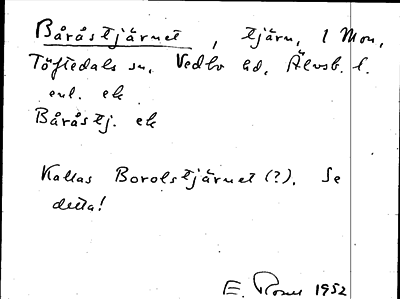 Båråstjärnet, tjärn, i Mon,
Töftedals sn, Vedbo hd, Älvsb. l.
enl. ek
Båråstj. ek
Kallas Borolstjärnet (?). Se
detta!
E. Rosell 1952